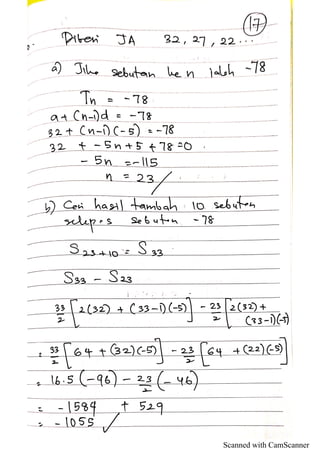 17
Diberi JA 32, 27, 22...
a) Jika sebutan ke n ialah -78
Tn = -78
a + (n-1)d = -78
32 + (n-1)(-5) = -78
32 + -5n + 5 + 78 = 0
-5n = -115
n = 23
b) Cari hasil tambah 10 sebutan
selepas sebutan -78
S23+10 = S33
S33 - S23
33/2 [2(32) + (33-1)(-5)] - 23/2 [2(32) +
(23-1)(-5)]
= 33/2 [64 + (32)(-5)] - 23/2 [64 + (22)(-5)]
= 16.5 (-96) - 23/2 (-46)
= -1584 + 529
= -1055
Scanned with CamScanner